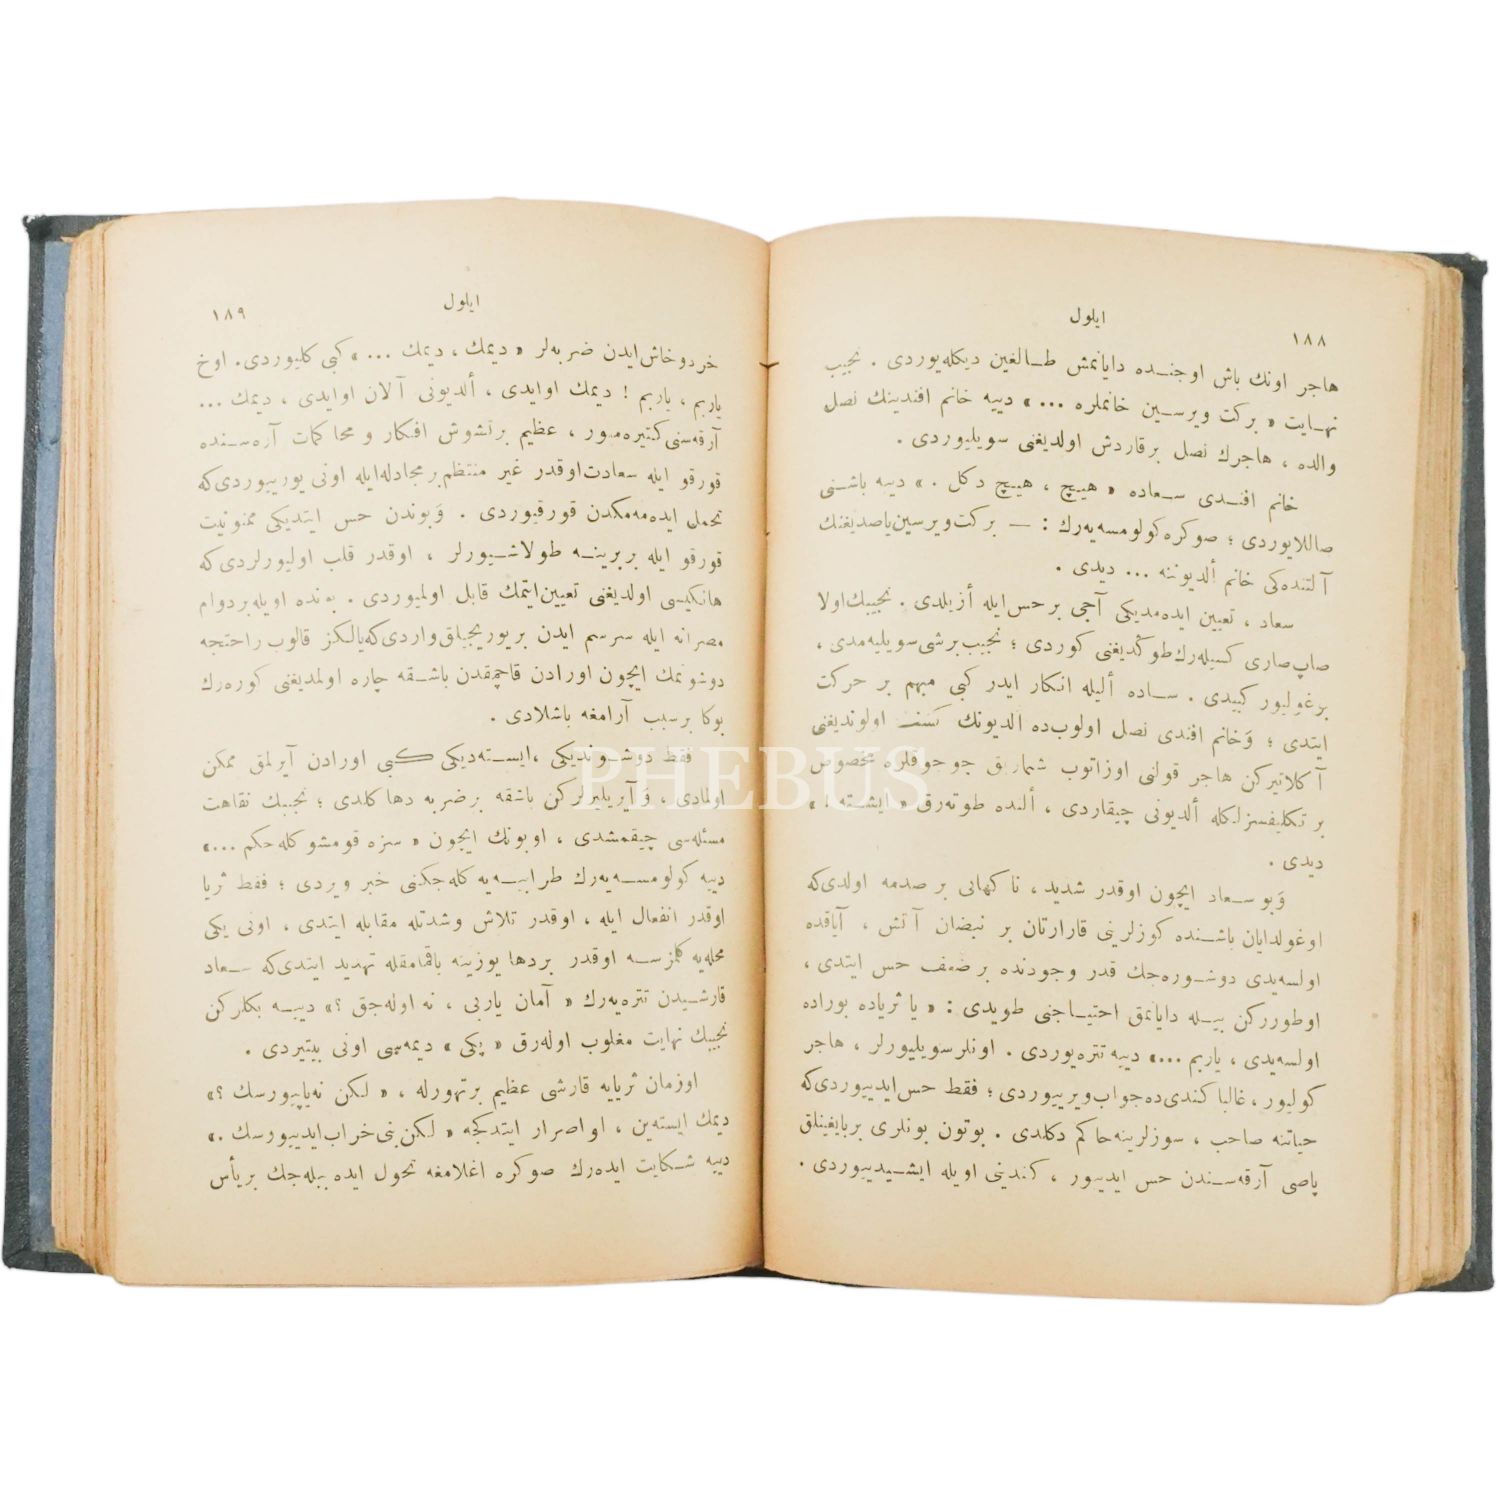 ١٨٨
ايلول
هاجر اونك باش اوجنـده دايانمش طـالغين ديكله‌يوردى . نجيب
نهـايت « بركت ويرسـين خانملره ... » دييه خانم افندينك نصل
والده ، هاجرك نصل برقاردش اولديغنى سويليوردى .
خانم افنـدى سـعاده « هيـچ ، هيـچ دكل . » دييه باشـنى
صاللايوردى ؛ صوكره كولومسه‌يه‌رك : — بركت ويرسين ياصديغنك
آلتنده‌كى خانم ألديوننه ... ديدى .
سعاد ، تعيين ايده‌مديكى آجى برحس ايله أزيلدى . نجيبك اولا
صاپ صارى كسيله‌رك طوكديغنى كوردى ؛ نجيب برشى سويليه‌مدى ،
برغوليور كبيدى . سـاده أليله انكار ايدر كبى مبهم بر حركت
ايتدى ؛ وَخانم افندى نصل اولوب‌ده الديونك كشف اولونديغنى
آكلاتيركن هاجر قولنى اوزاتوب شماريق جوجوقلره مخصوص
بر تكليفسزلكله ألديونى چيقاردى ، ألنده طوته‌رق « ايشـته ! »
ديدى .
وَبو سـعاد ايچون اوقدر شديد ، ناكهانى بر صدمه اولدى‌كه
اوغولدايان باشـنده كوزلرينى قارارتان بر نبضان آتش ، آياقده
اولسه‌يدى دوشوره‌جك قدر وجودنده بر ضعف حس ايتدى ،
اوطورركن بيـله دايانمق احتيـاجنى طويدى : « يا ثرياده بوراده
اولسه‌يدى ، ياربم ...» دييه تتره‌يوردى . اونلرسويليورلر ، هاجر
كوليور ، غالبا كندى‌ده جواب ويرييوردى ؛ فقط حس ايدييوردى‌كه
حياتنه صاحب ، سوزلرينه حاكم دكلدى . بوتون بونلرى بربايغينلق
پاصى آرقه‌سـندن حس ايدييور ، كندينى اويله ايشـيدييوردى .
١٨٩
ايلول
خردوخاش ايدن ضربه‌لر « ديمك ، ديمك ... » كبى كليوردى . اوخ
ياربم ، ياربم ! ديمك اوايدى ، ألديونى آلان اوايدى ، ديمك ...
آرقه‌سنى كتيره‌ميور ، عظيم برتشوش افكار و محاكمات آره‌سـنده
قورقو ايله سعادت اوقدر غير منتظم بر مجادله ايله اونى يورييوردى‌كه
تحمل ايده‌مه‌مكدن قورقيوردى . وَبوندن حس ايتديكى ممنونيت
قورقو ايله بربرينـه طولاشـيورلر ، اوقدر قلب اوليورلردى‌كه
هانكيسى اولديغنى تعيين ايتمك قابل اولميوردى . بونده اويله بردوام
مصرانه ايله سرسم ايدن بريوريجيلق واردى‌كه يالكز قالوب راحتجه
دوشونمك ايچون اورادن قاچمقدن باشـقه چاره اولمديغنى كوره‌رك
بوكا برسبب آرامغه باشلادى .
فقط دوشـونديكى ، ايسـته‌ديكى كبى اورادن آيرلمق ممكن
اولمادى ، وَآيريليرلركن باشقه برضربه دها كلدى ؛ نجيبك نقاهت
مسئله‌سى چيقمشدى ، اوبونك ايچون « سزه قومشو كله‌جكم ...»
دييه كولومسـه‌يه‌رك طرابيـه‌يه كله‌جكنى خبر ويردى ؛ فقط ثريا
اوقدر انفعال ايله ، اوقدر تلاش وشدتله مقابله ايتدى ، اونى يكى
محله‌يه كلمزسـه اوقدر بردها يوزينه باقمامقله تهديد ايتدى‌كه سـعاد
قارشـيدن تتره‌يه‌رك « آمان ياربى ، نه اوله‌جق ؟» دييـه بكلركن
نجيبك نهايت مغلوب اوله‌رق « پكى » ديمه‌سى اونى بيتيردى .
اوزمان ثريايه قارشى عظيم برتهورله ، « لكن نه‌ياپيورسك ؟»
ديمك ايسته‌ين ، او اصرار ايتدكجه « لكن بنى خراب ايدييورسك .»
دييه شـكايت ايده‌رك صوكره اغلامغه تحول ايده بيله‌جك بريأس
PHEBUS